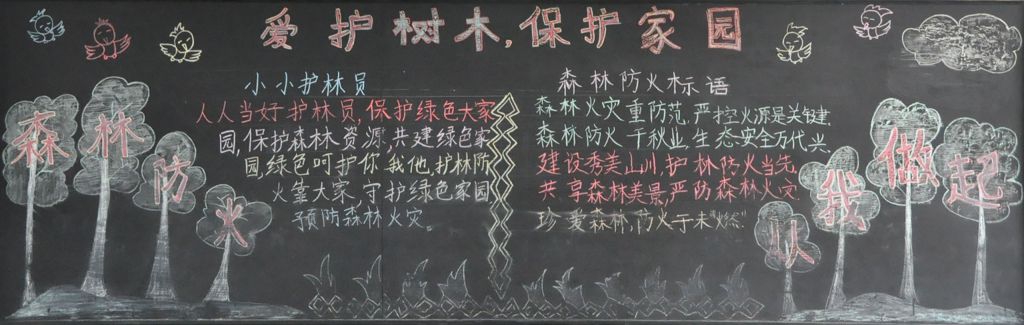 爱护树木,保护家园
森林防火
小小护林员
人人当好护林员,保护绿色大家
园,保护森林资源,共建绿色家
园绿色呵护你我他,护林防
火靠大家,守护绿色家园
预防森林火灾。
森林防火标语
森林火灾重防范,严控火源是关键
森林防火千秋业,生态安全万代兴
建设秀美山川,护林防火当先
共享森林美景,严防森林火灾
珍爱森林,防火于未"燃"
从我做起